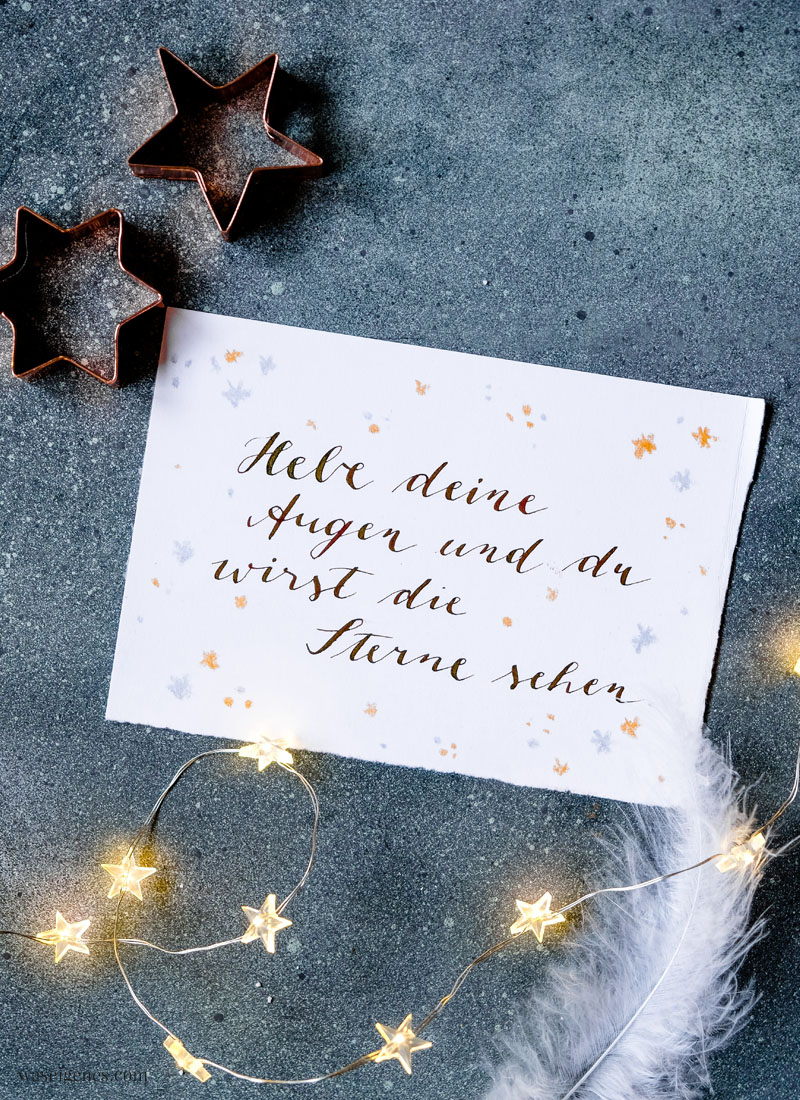 Hebe deine
Augen und du
wirst die
Sterne sehen
waseigenes.com